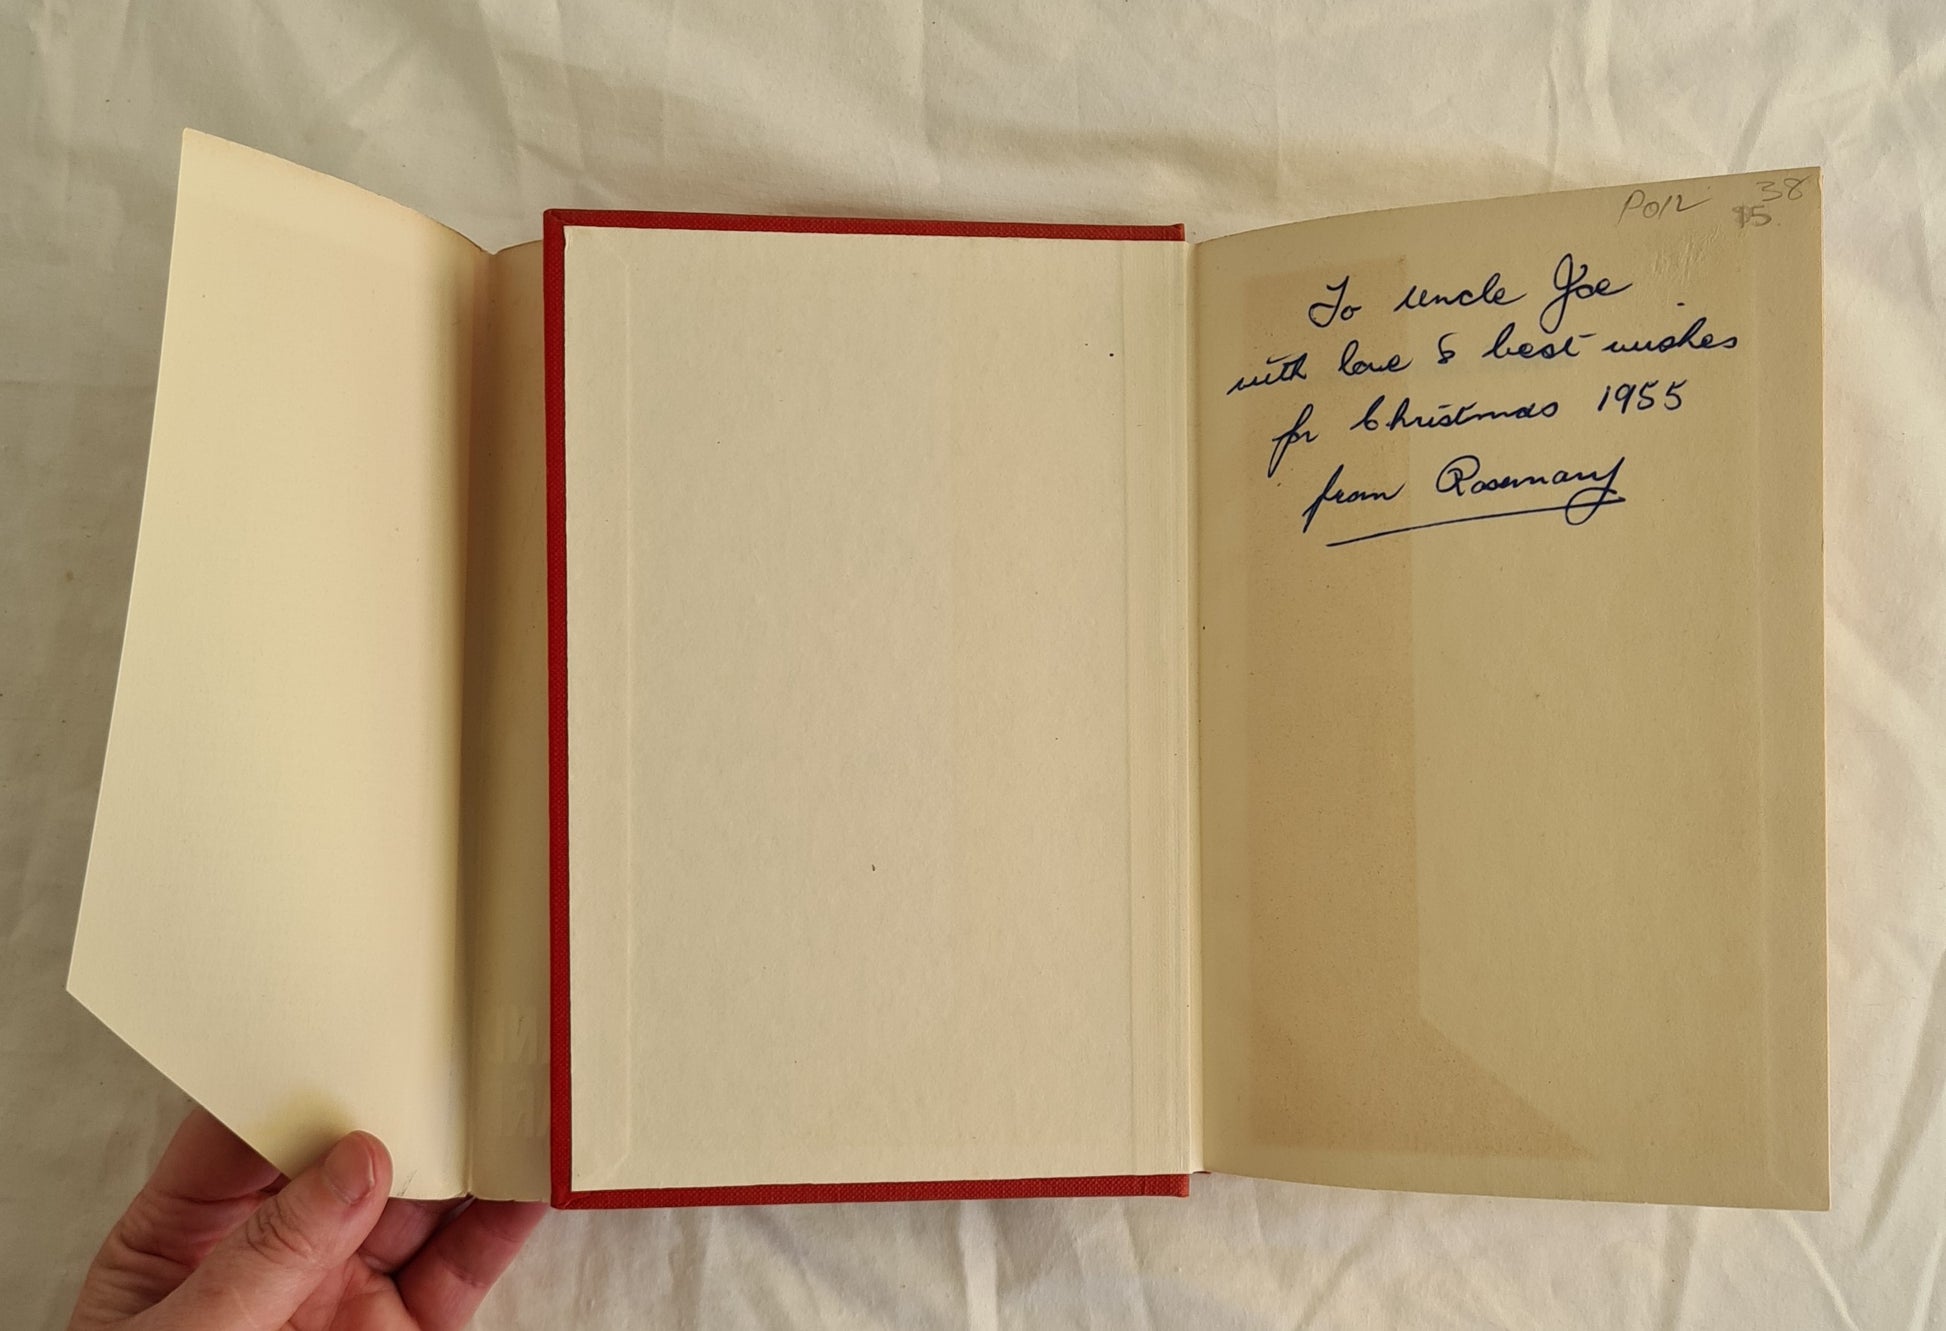 Pol2 38
$5.
To uncle Joe
with love & best wishes
for Christmas 1955
from Rosemary